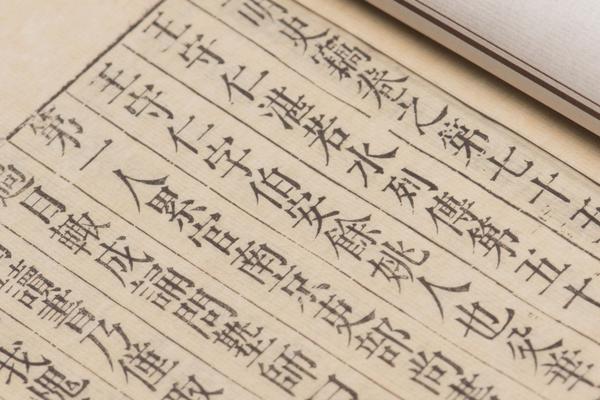 明史竊卷之第七十五
王守仁湛若水列傳第五十
王守仁字伯安餘姚人也父華
第一人累官南京吏部尚書
過目輙成誦問塾師曰
謂書乃僅取
我愧